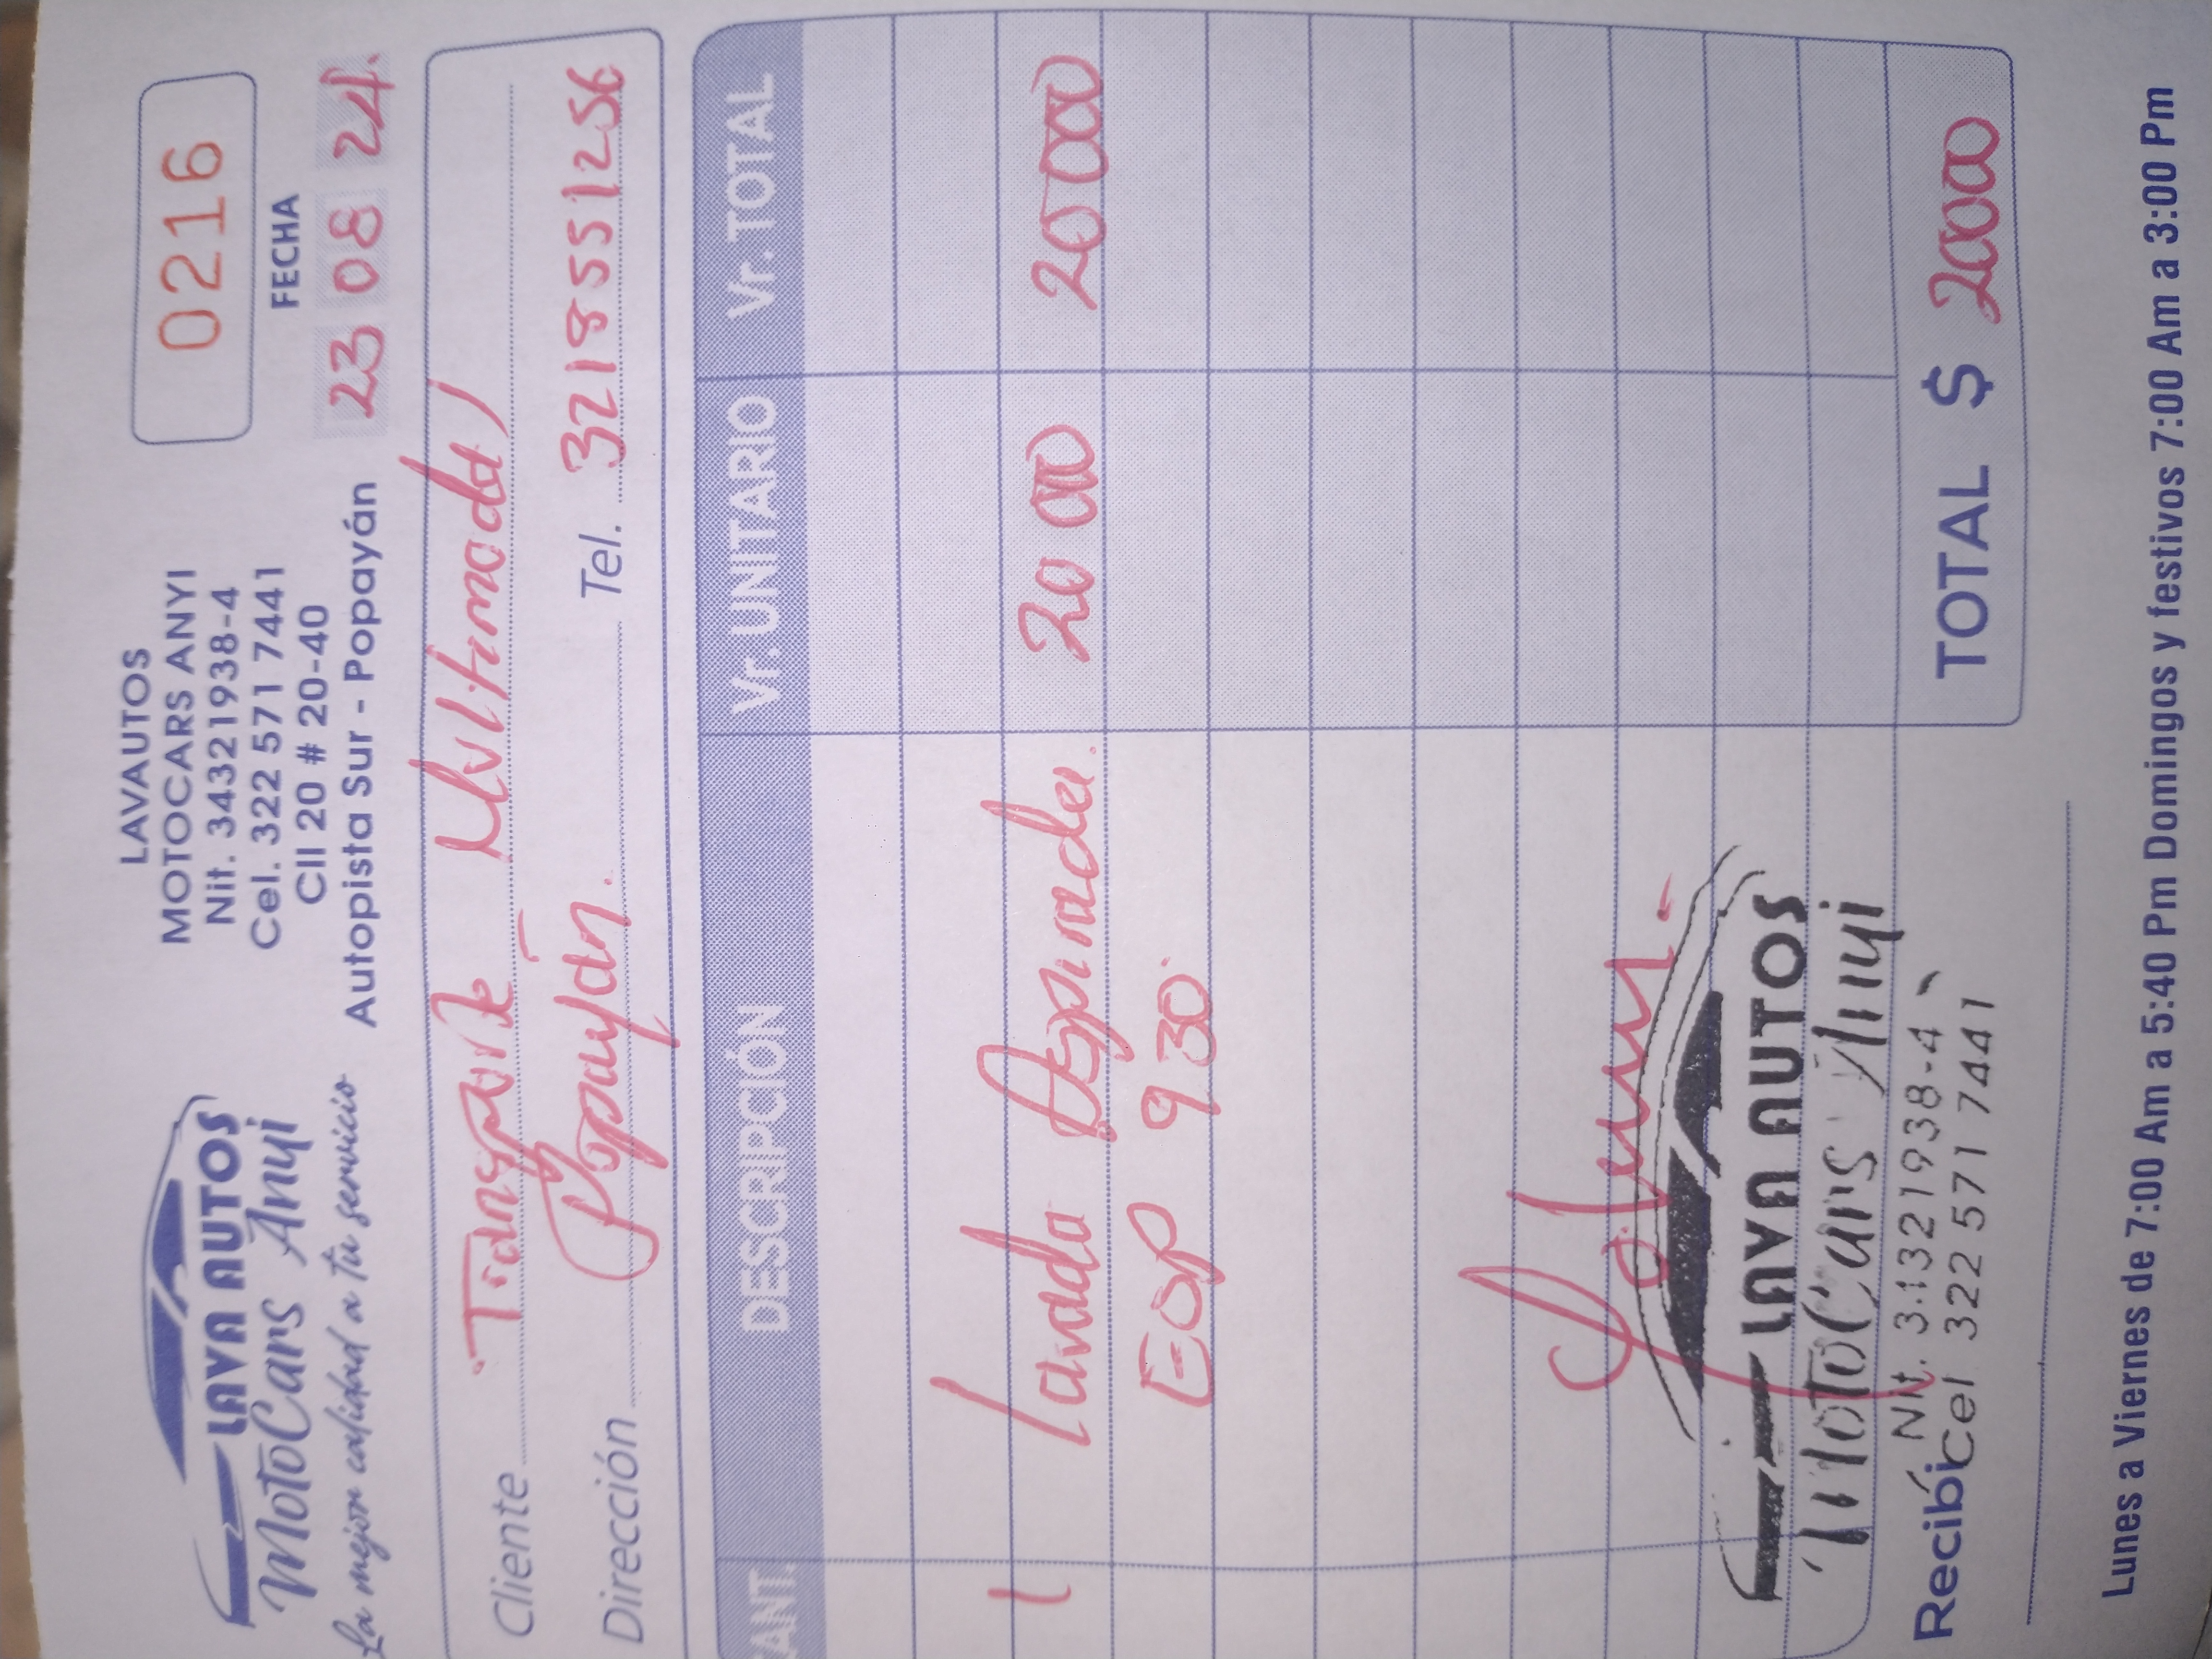 LAVA AUTOS
MotoCars Anyi
La mejor calidad a tu servicio
LAVAUTOS
MOTOCARS ANYI
Nit. 34321938-4
Cel. 322 571 7441
Cll 20 # 20-40
Autopista Sur - Popayán
0216
FECHA
23 08 24
Cliente Transporte Multimodal
Dirección Popayán. Tel. 3218551256
CANT. DESCRIPCIÓN Vr. UNITARIO Vr. TOTAL
1 lavada Aspirada. 20 000 20 000
EOP 930
TOTAL $ 20000
LAVA AUTOS
MotoCars Anyi
Nit. 34321938-4
Cel 322 571 7441
Recibí
Lunes a Viernes de 7:00 Am a 5:40 Pm Domingos y festivos 7:00 Am a 3:00 Pm